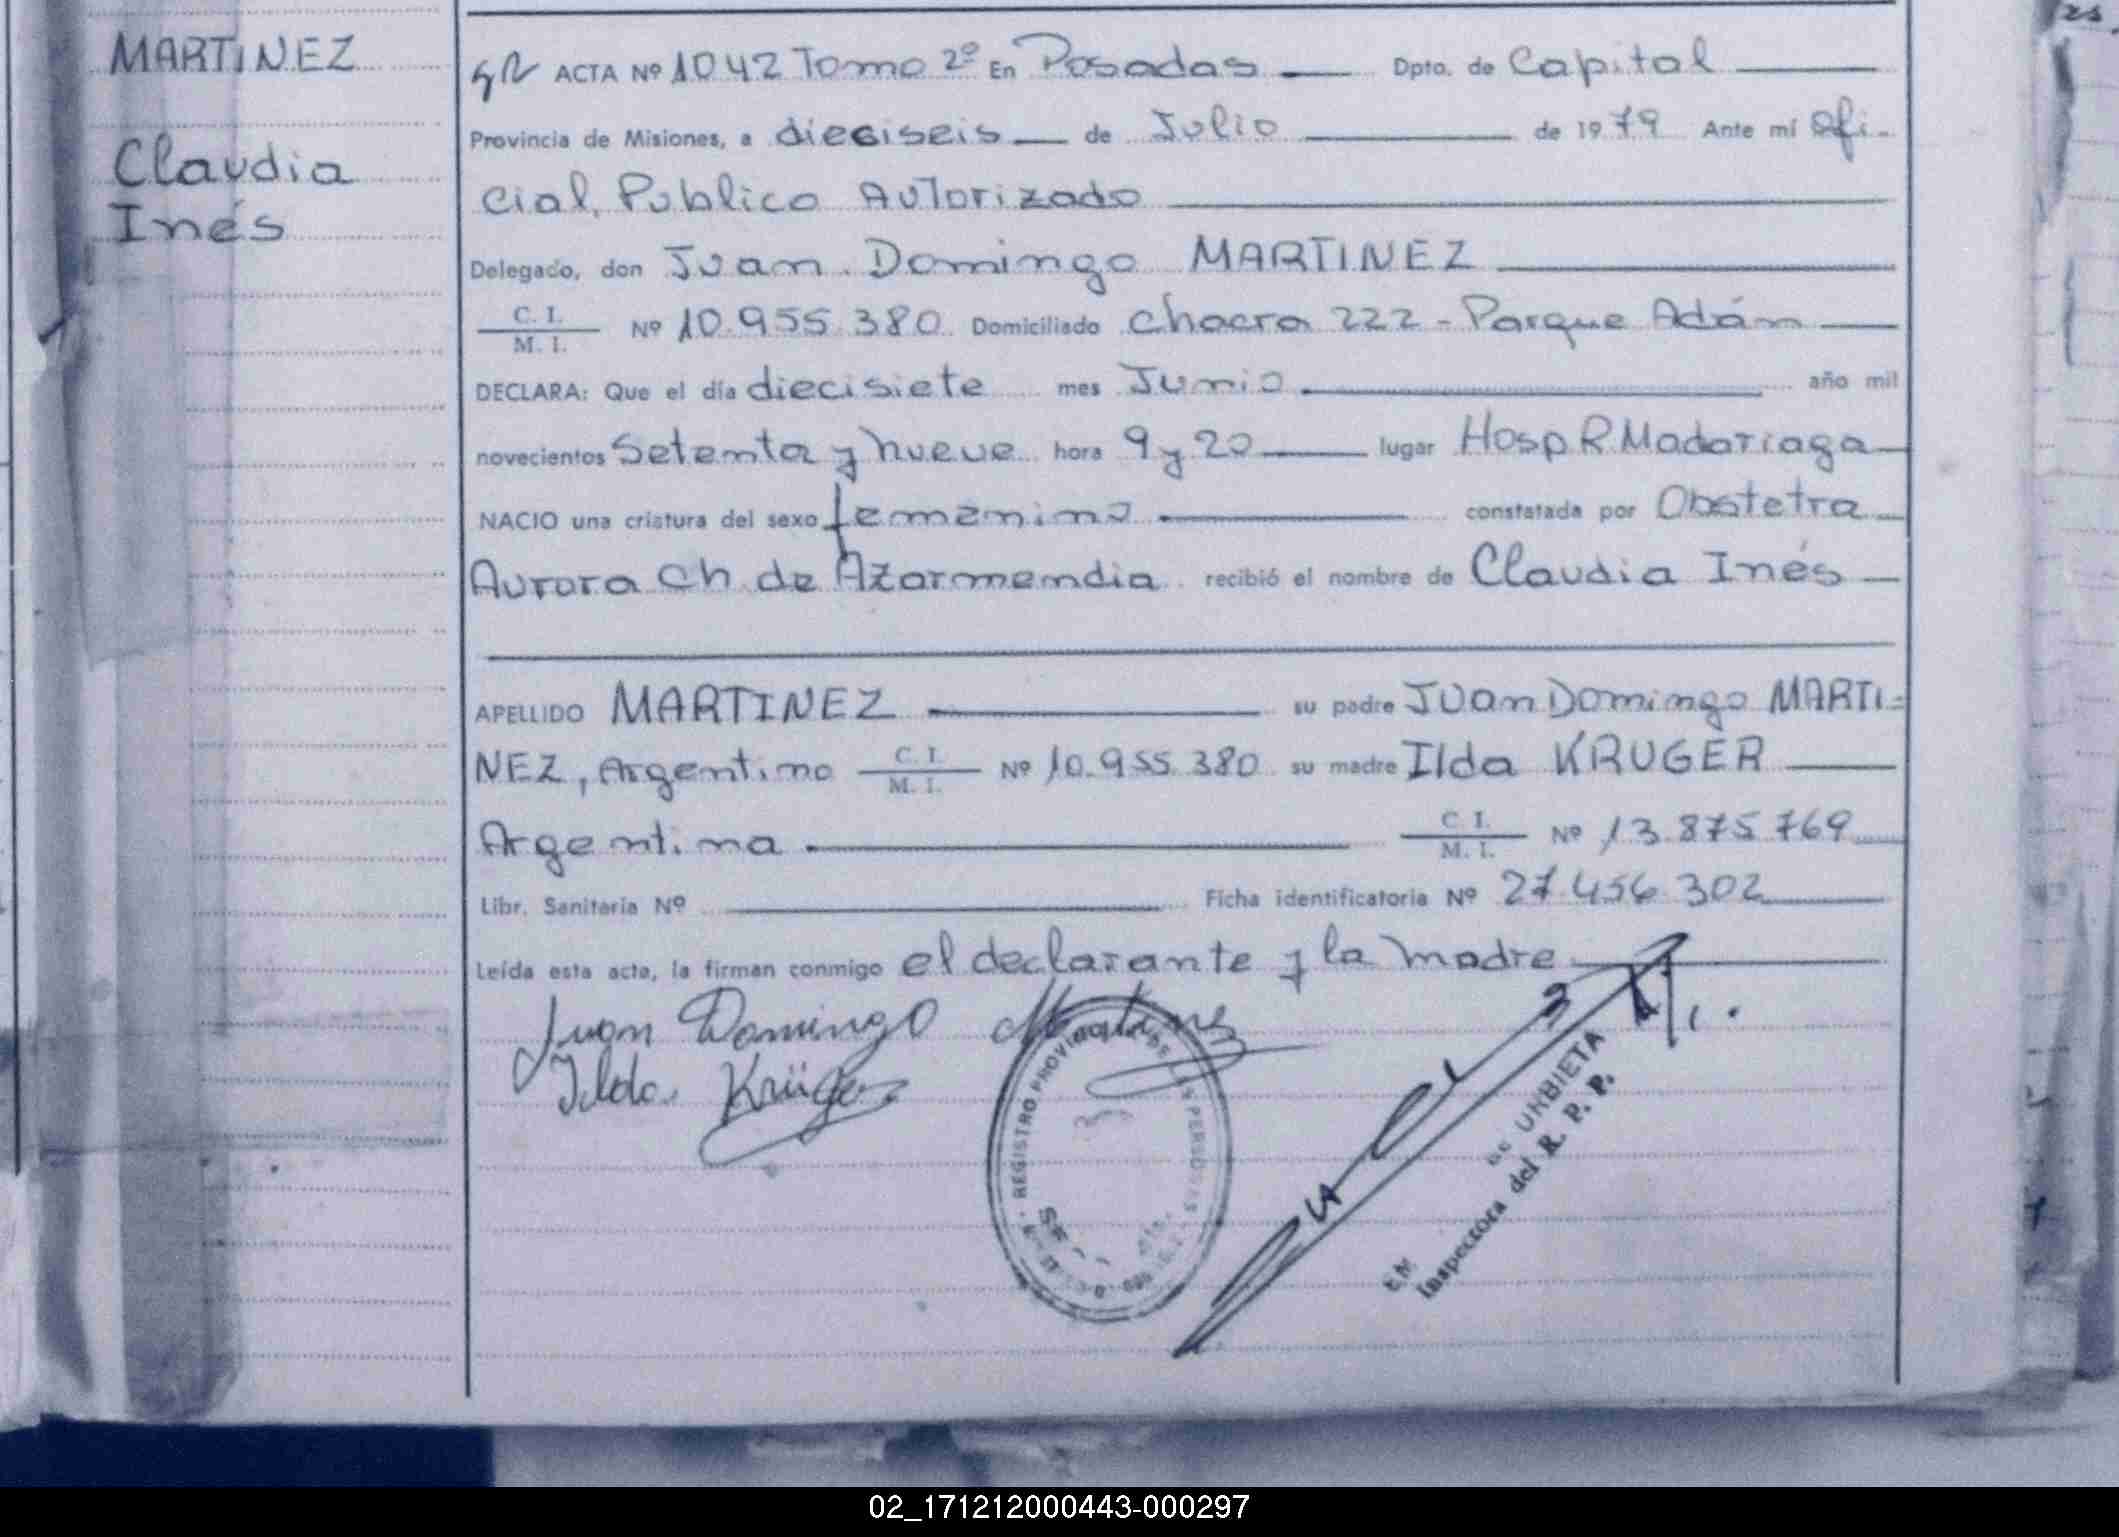 MARTINEZ
Claudia
Inés
ACTA Nº 1042 Tomo 2º En Posadas Dpto. de Capital
Provincia de Misiones, a dieciseis de Julio de 1979 Ante mí Ofi-
cial, Publico Autorizado
Delegado, don Juan Domingo MARTINEZ
C. I.
M. I. Nº 10.955.380 Domiciliado Chacra 222 - Parque Adám
DECLARA: Que el día diecisiete mes Junio año mil
novecientos setenta y nueve hora 9 y 20 lugar Hosp R. Madariaga
NACIO una criatura del sexo femenino constatada por Obstetra
Aurora Ch. de Azarmendia recibió el nombre de Claudia Inés
APELLIDO MARTINEZ su padre Juan Domingo MARTI-
NEZ, Argentino C. I. M. I. Nº 10.955.380 su madre Ilda KRUGER
Argentina C. I. M. I. Nº 13.875.769
Libr. Sanitaria Nº Ficha identificatoria Nº 27.456.302
Leída esta acta, la firman conmigo el declarante y la madre
Juan Domingo Martinez
Ilda Krüger
REGISTRO PROVINCIAL DE LAS PERSONAS
DE URBIETA
Inspectora del R. P. P.
02_171212000443-000297